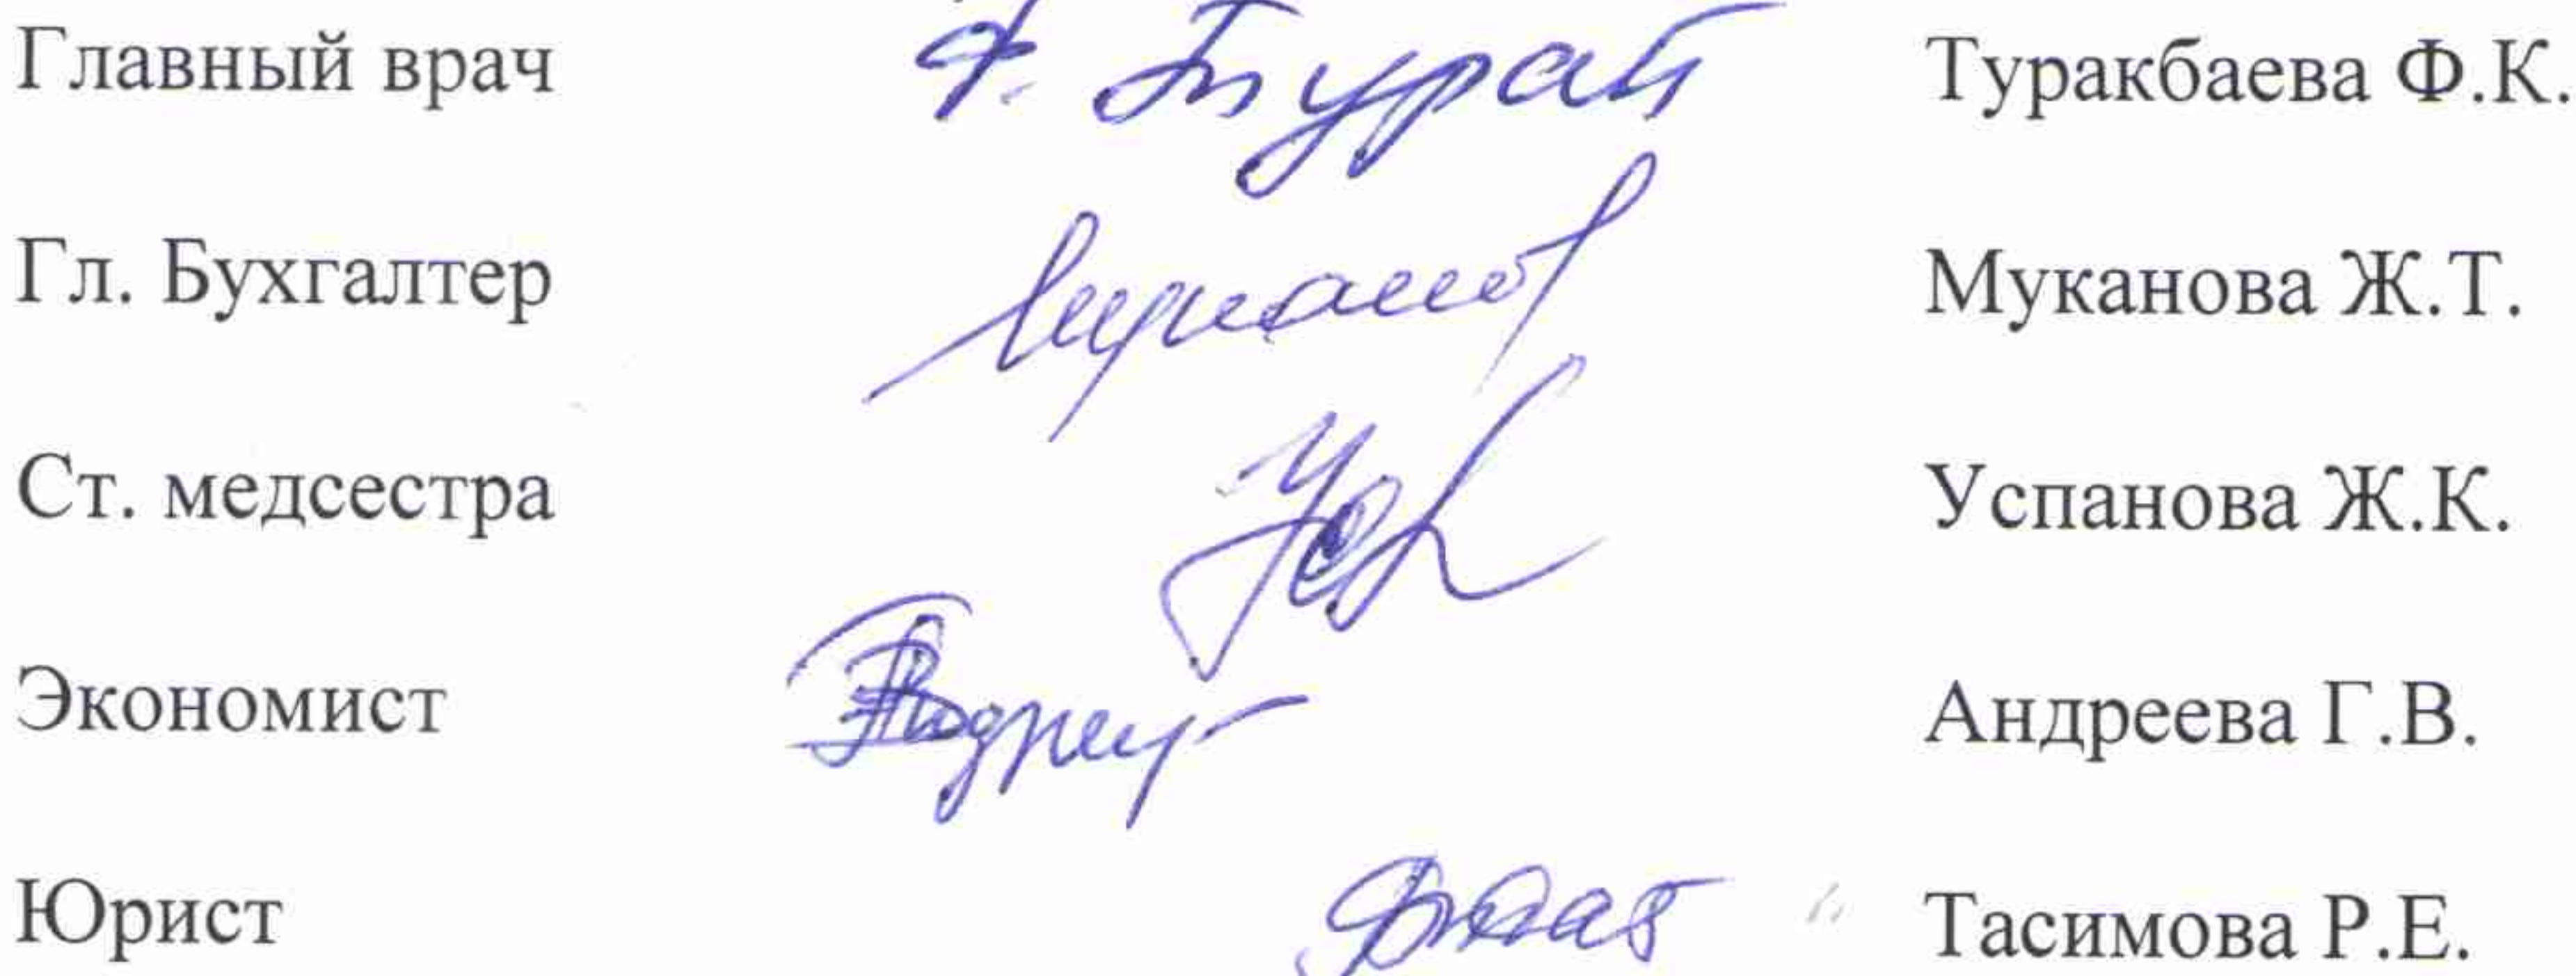 Главный врач Туракбаева Ф.К.
Гл. Бухгалтер Муканова Ж.Т.
Ст. медсестра Успанова Ж.К.
Экономист Андреева Г.В.
Юрист Тасимова Р.Е.